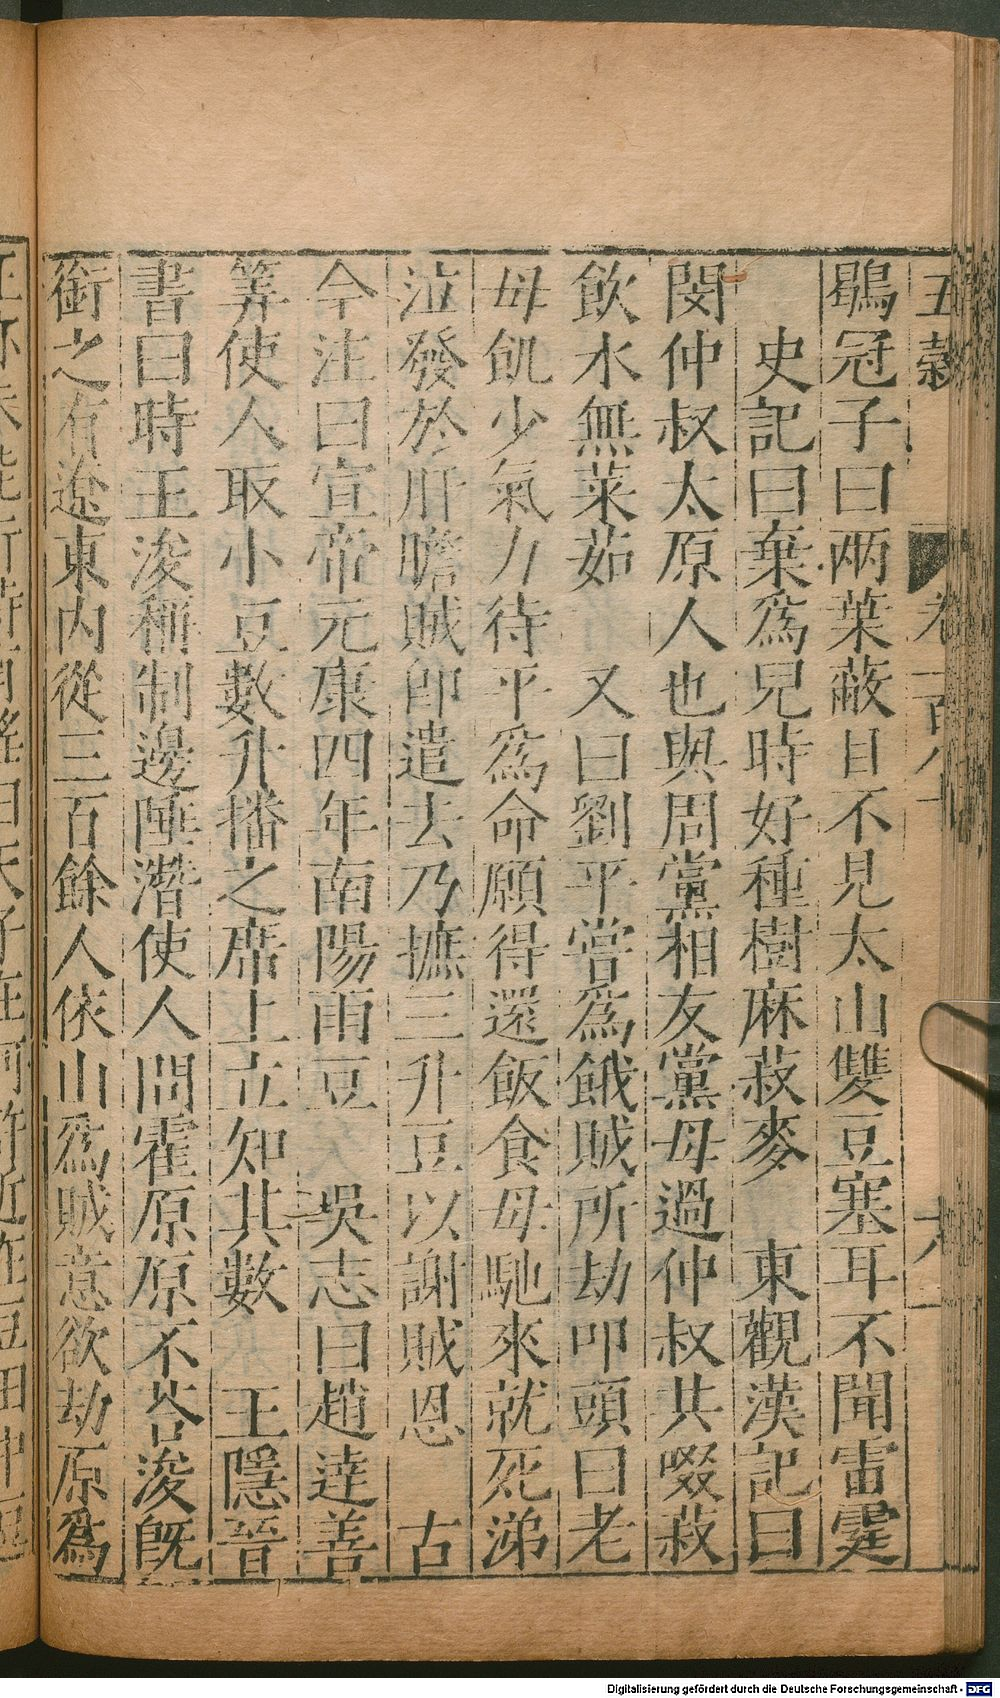 五穀 卷一百八十 六
鶡冠子曰兩葉蔽目不見太山雙豆塞耳不聞雷霆
史記曰棄爲兒時好種樹麻菽麥 東觀漢記曰
閔仲叔太原人也與周黨相友黨母過仲叔共啜菽
飲水無菜茹 又曰劉平嘗爲餓賊所劫叩頭曰老
母飢少氣力待平爲命願得還飯食母馳來就死涕
泣發於肝膽賊即遣去乃摭三升豆以謝賊恩 古
今注曰宣帝元康四年南陽雨豆 吳志曰趙達善
筭使人取小豆數升播之席上立知其數 王隱晉
書曰時王浚稱制邊陲潛使人問霍原原不荅浚既
銜之有遼東内從三百餘人依山爲賊意欲劫原爲
Digitalisierung gefördert durch die Deutsche Forschungsgemeinschaft - DFG